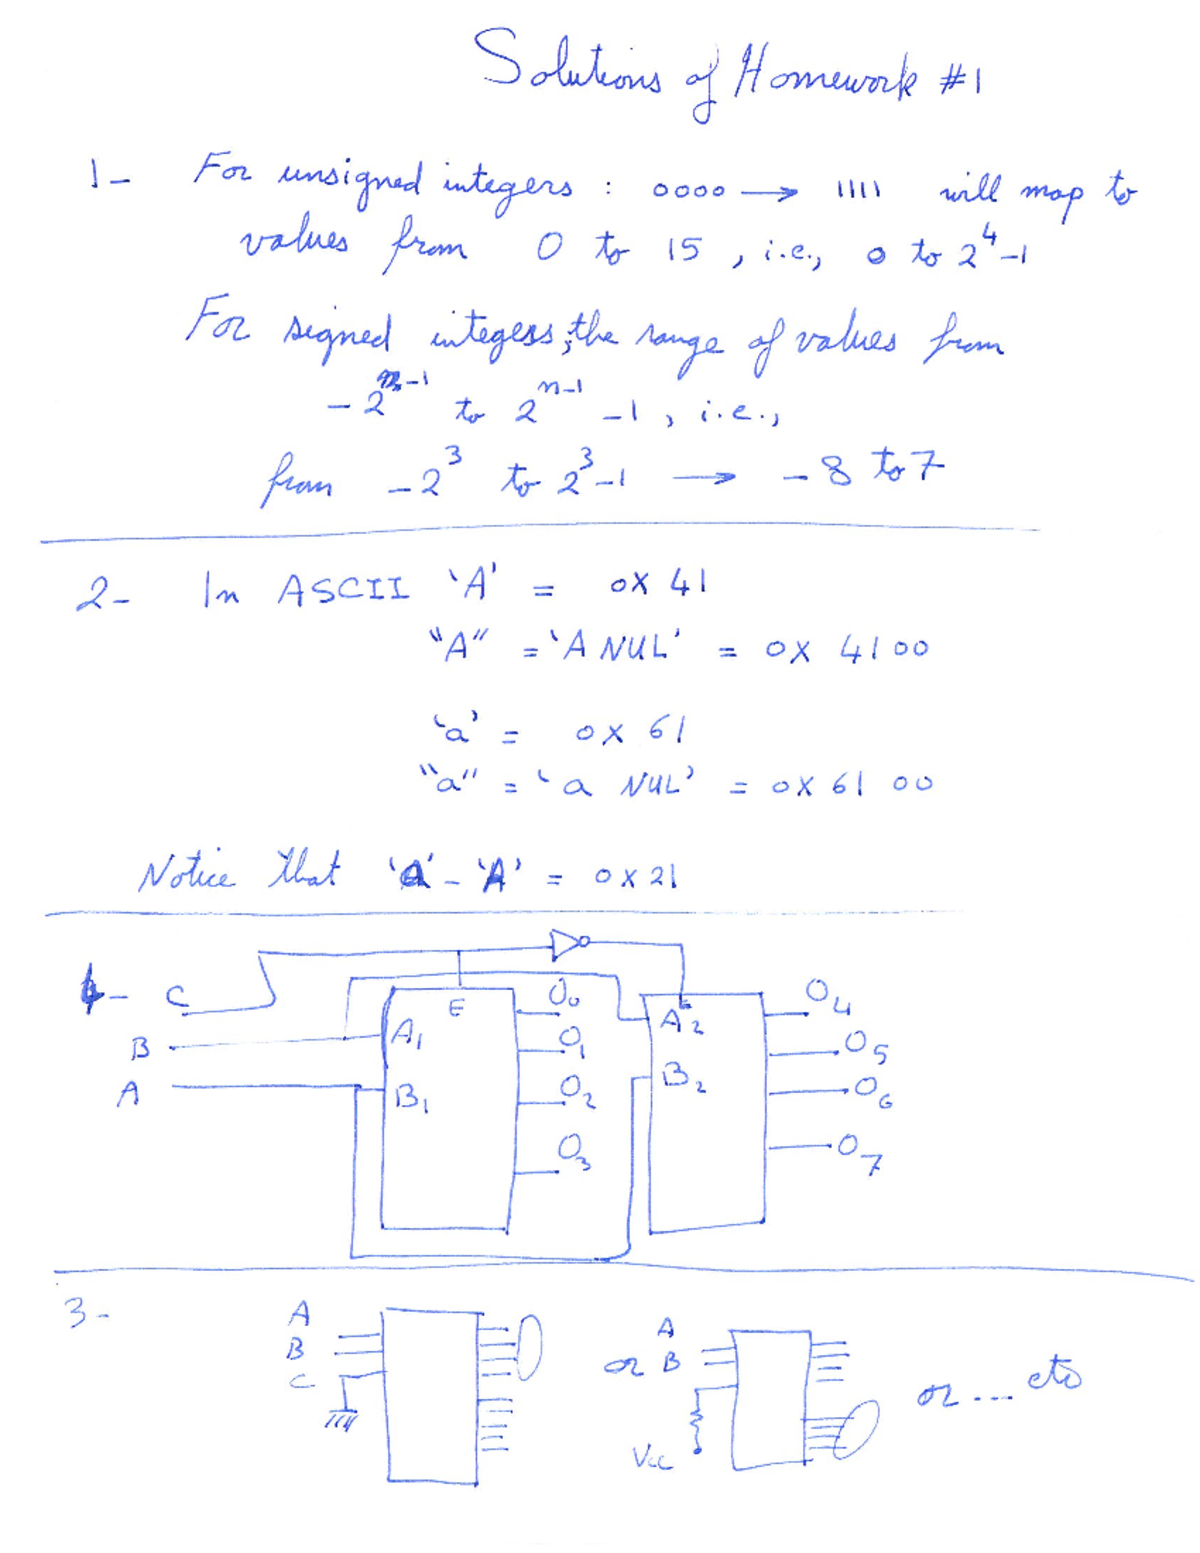 Solutions of Homework #1
1- For unsigned integers : 0000 → 1111 will map to
values from 0 to 15 , i.e., 0 to 2^4-1
For signed integers, the range of values from
-2^n-1 to 2^n-1 -1 , i.e.,
from -2^3 to 2^3-1 → -8 to 7
2- In ASCII 'A' = 0X 41
"A" = 'A NUL' = 0X 4100
'a' = 0X 61
"a" = 'a NUL' = 0X 61 00
Notice that 'a' - 'A' = 0X21
4- C
B
A
E
A1
B1
O0
O1
O2
O3
E
A2
B2
O4
O5
O6
O7
3-
A
B
C
or
A
B
Vcc
or ... etc